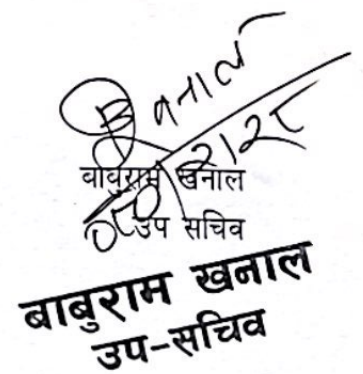 खनाल
बाबुराम खनाल
उप सचिव
बाबुराम खनाल
उप-सचिव